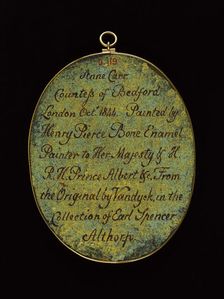 D.19
Anne Carr
Countess of Bedford
London Oct. 1844. Painted by
Henry Pierce Bone Enamel
Painter to Her Majesty & H.
R. H. Prince Albert &c. From
the Original by Vandyck, in the
Collection of Earl Spencer
Althorp.